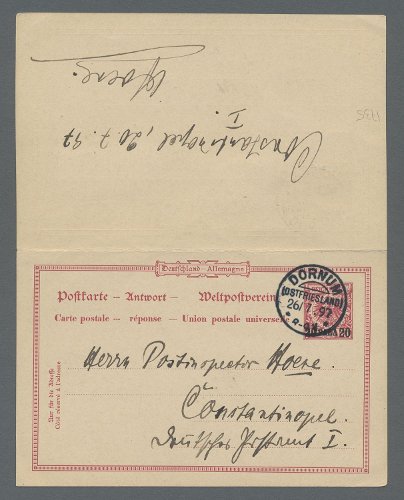 Hoene.
Constantinopel, 20.7.97
I.
1735
Deutschland - Allemagne
Postkarte — Antwort — Weltpostverein
Carte postale — réponse — Union postale universelle
Nur für die Adresse
Côté réservé à l'adresse
DORNUM
(OSTFRIESLAND)
26/7 97
20
Herrn Postinspector Hoene.
Constantinopel.
Deutsches Postamt I.